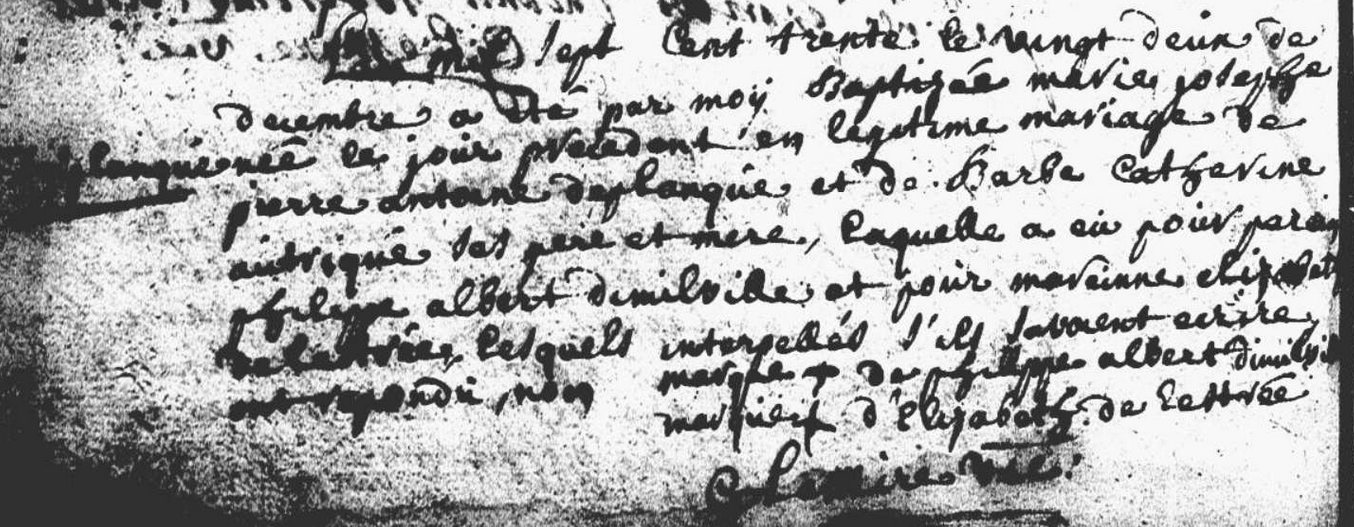 L'an mil sept Cent trente le vingt deux de
decembre a eté par moÿ Baptizée marie josephe
planque neé le jour precedent en legitime mariage de
pierre antoine desplanque et de Barbe Catherine
autrique ses pere et mere, laquelle a eu pour parain
philippe albert dimilville et pour mareinne elizabet
de lettrée, lesquels interpellés s'ils savoient ecrire
ont repondu, non marque + de philippe albert dimilville
marque + d'Elizabeth de lettrée
C Lemire vic: